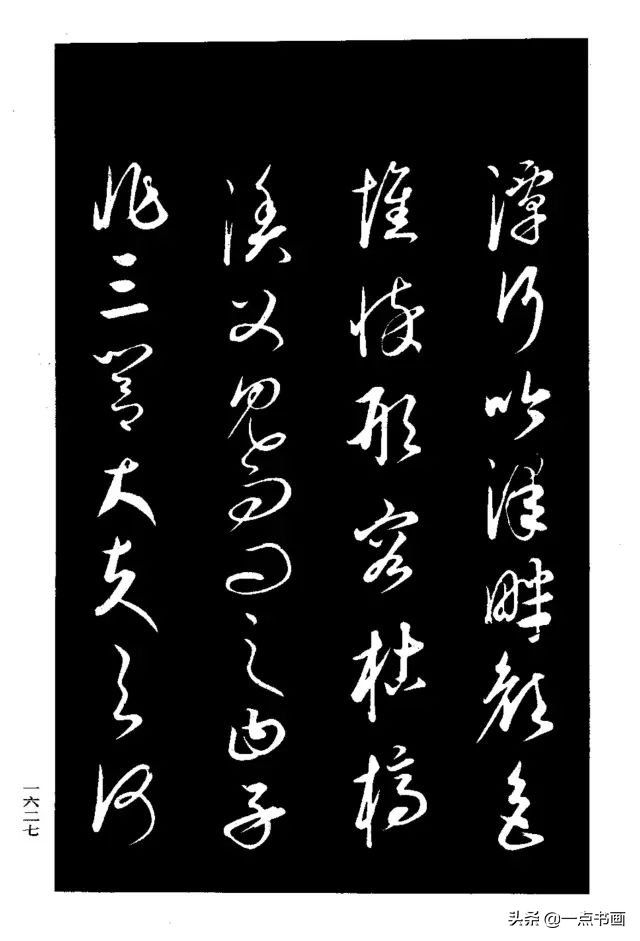 潭行吟澤畔顏色
憔悴形容枯槁
漁父見而問之曰子
非三閭大夫與何
一六二七
头条 @一点书画